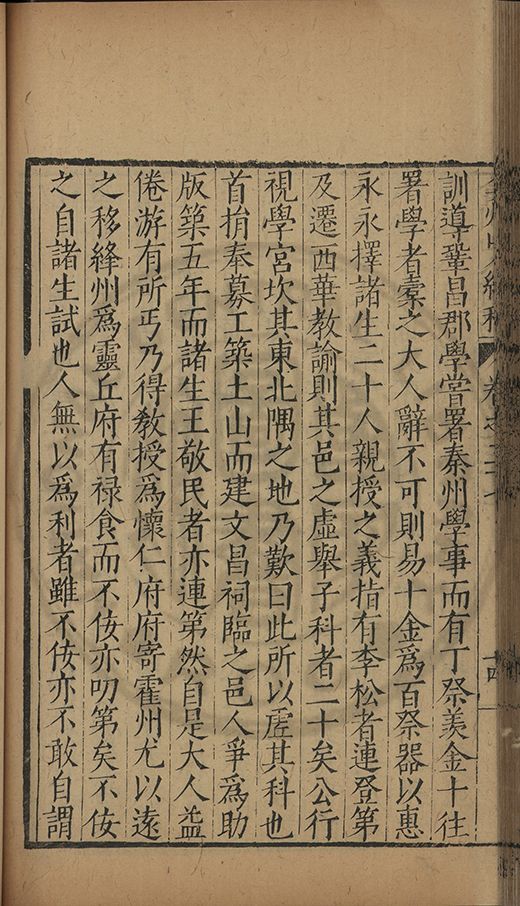 訓導鞏昌郡學嘗署秦州學事而有丁祭羨金十往
署學者橐之大人辭不可則易十金爲百祭器以惠
永永擇諸生二十人親授之義指有李松者連登第
及遷西華教諭則其邑之虛舉子科者二十矣公行
視學宮坎其東北隅之地乃歎曰此所以虛其科也
首捐奉募工築土山而建文昌祠臨之邑人爭爲助
版築五年而諸生王敬民者亦連第然自是大人益
倦游有所丐乃得教授爲懷仁府府寄霍州尤以遠
之移絳州爲靈丘府有祿食而不佞亦叨第矣不佞
之自諸生試也人無以爲利者雖不佞亦不敢自謂